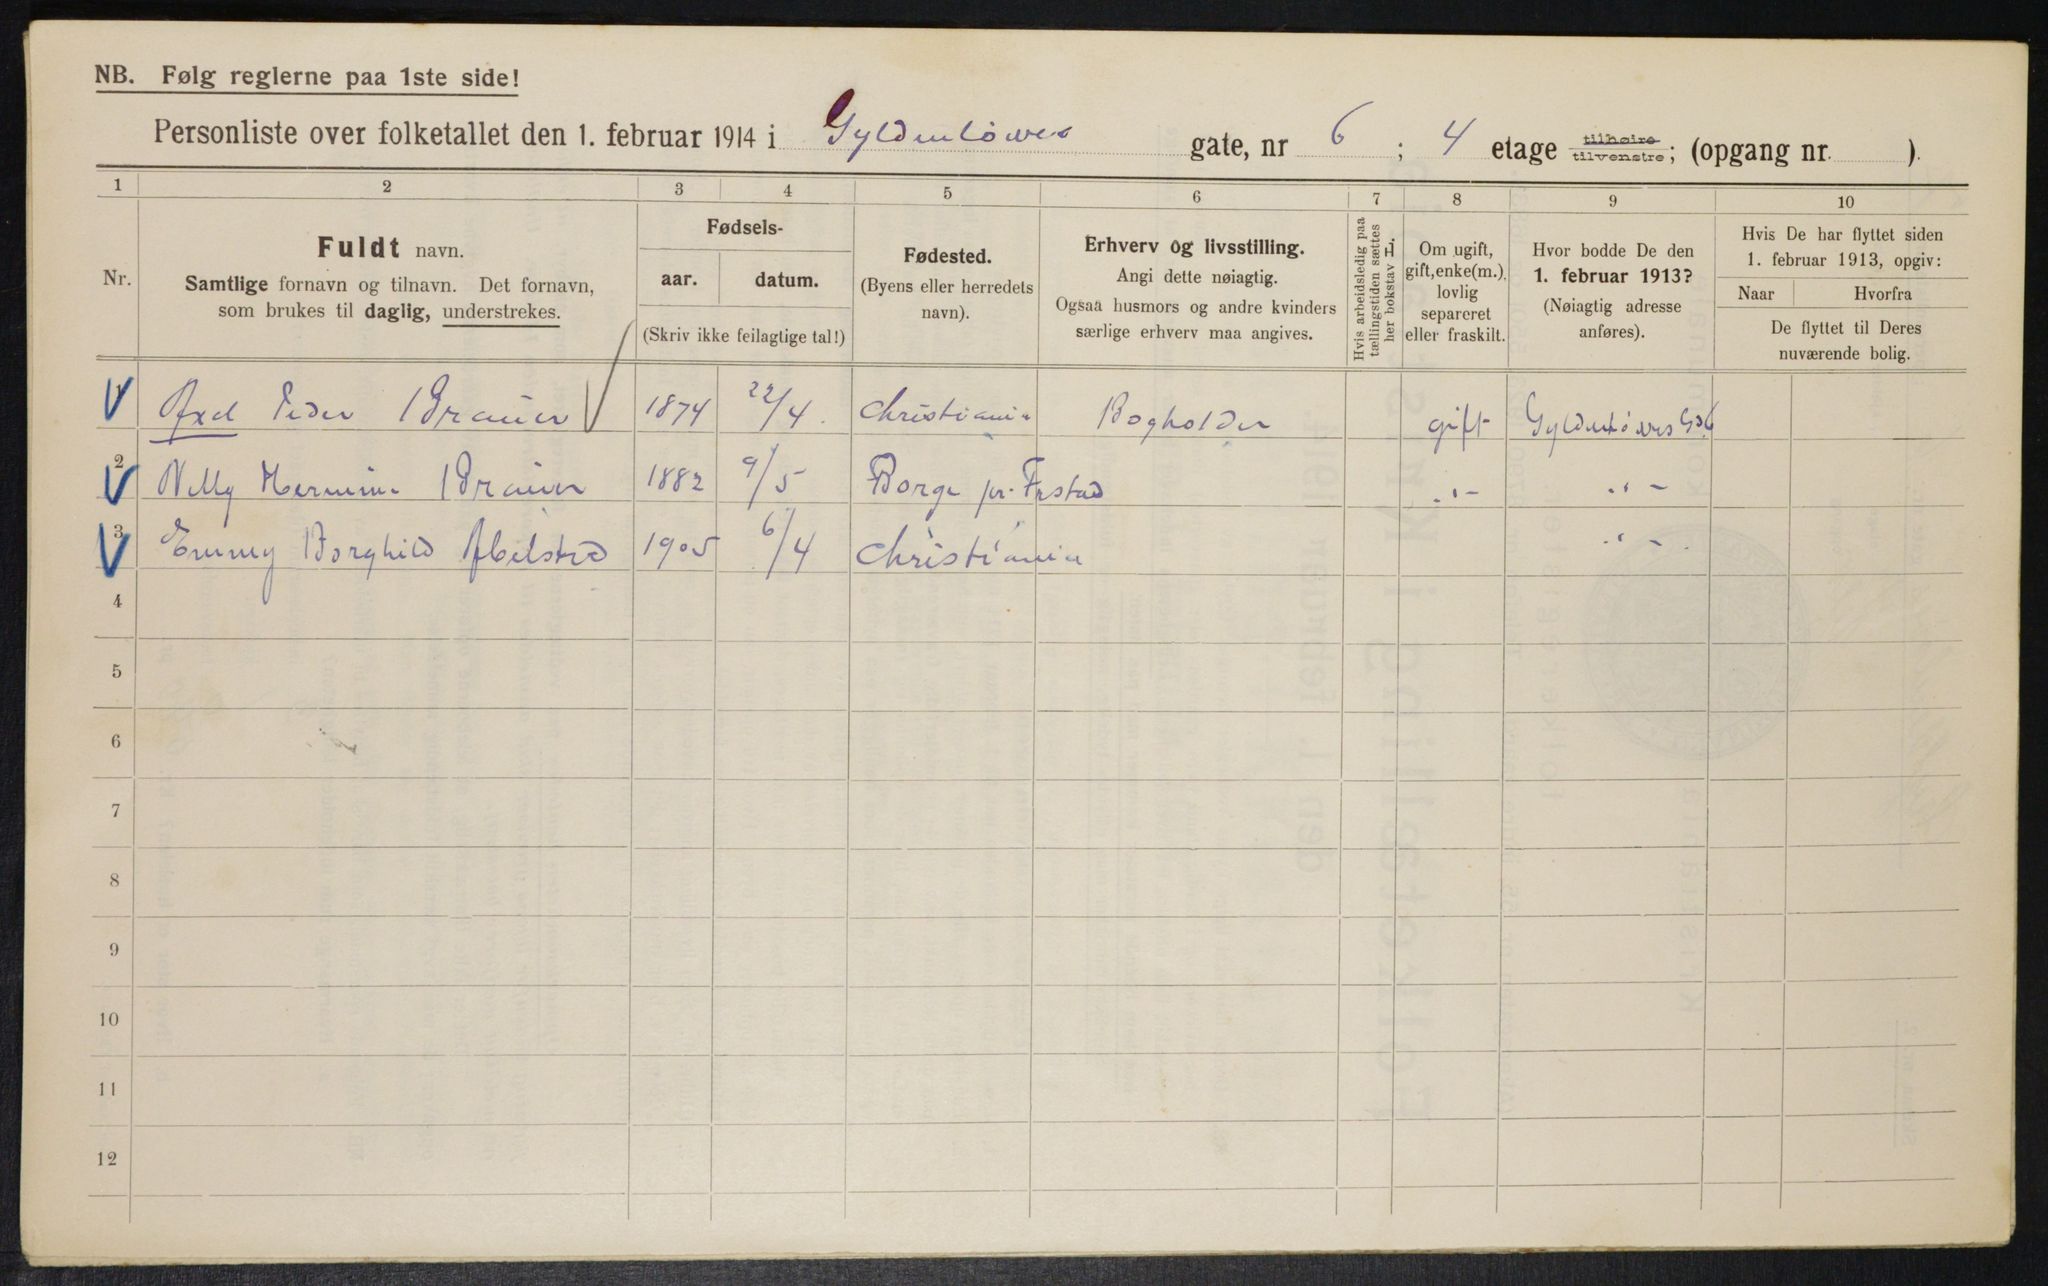 NB. Følg reglerne paa 1ste side!
Personliste over folketallet den 1. februar 1914 i Gyldenløves gate, nr 6 ; 4 etage tilhøire tilvenstre; (opgang nr. ).
1 2 3 4 5 6 7 8 9 10
Nr.
Fuldt navn.
Samtlige fornavn og tilnavn. Det fornavn,
som brukes til daglig, understrekes.
Fødsels-
aar. datum.
(Skriv ikke feilagtige tal!)
Fødested.
(Byens eller herredets
navn).
Erhverv og livsstilling.
Angi dette nøiagtig.
Ogsaa husmors og andre kvinders
særlige erhverv maa angives.
Hvis arbeidsledig paa
tællingstiden sættes
her bokstav L.
Om ugift,
gift, enke(m.),
lovlig
separeret
eller fraskilt.
Hvor bodde De den
1. februar 1913?
(Nøiagtig adresse
anføres).
Hvis De har flyttet siden
1. februar 1913, opgiv:
Naar Hvorfra
De flyttet til Deres
nuværende bolig.
1 Axel Peder Brauer 1874 22/4 Christiania Bogholder gift Gyldenløves Gd 6
2 Nelly Hermine Brauer 1882 9/5 Borge pr. Frstad „ - „ -
3 Emmy Borghild Abelsted 1905 6/4 Christiania „ -
4
5
6
7
8
9
10
11
12